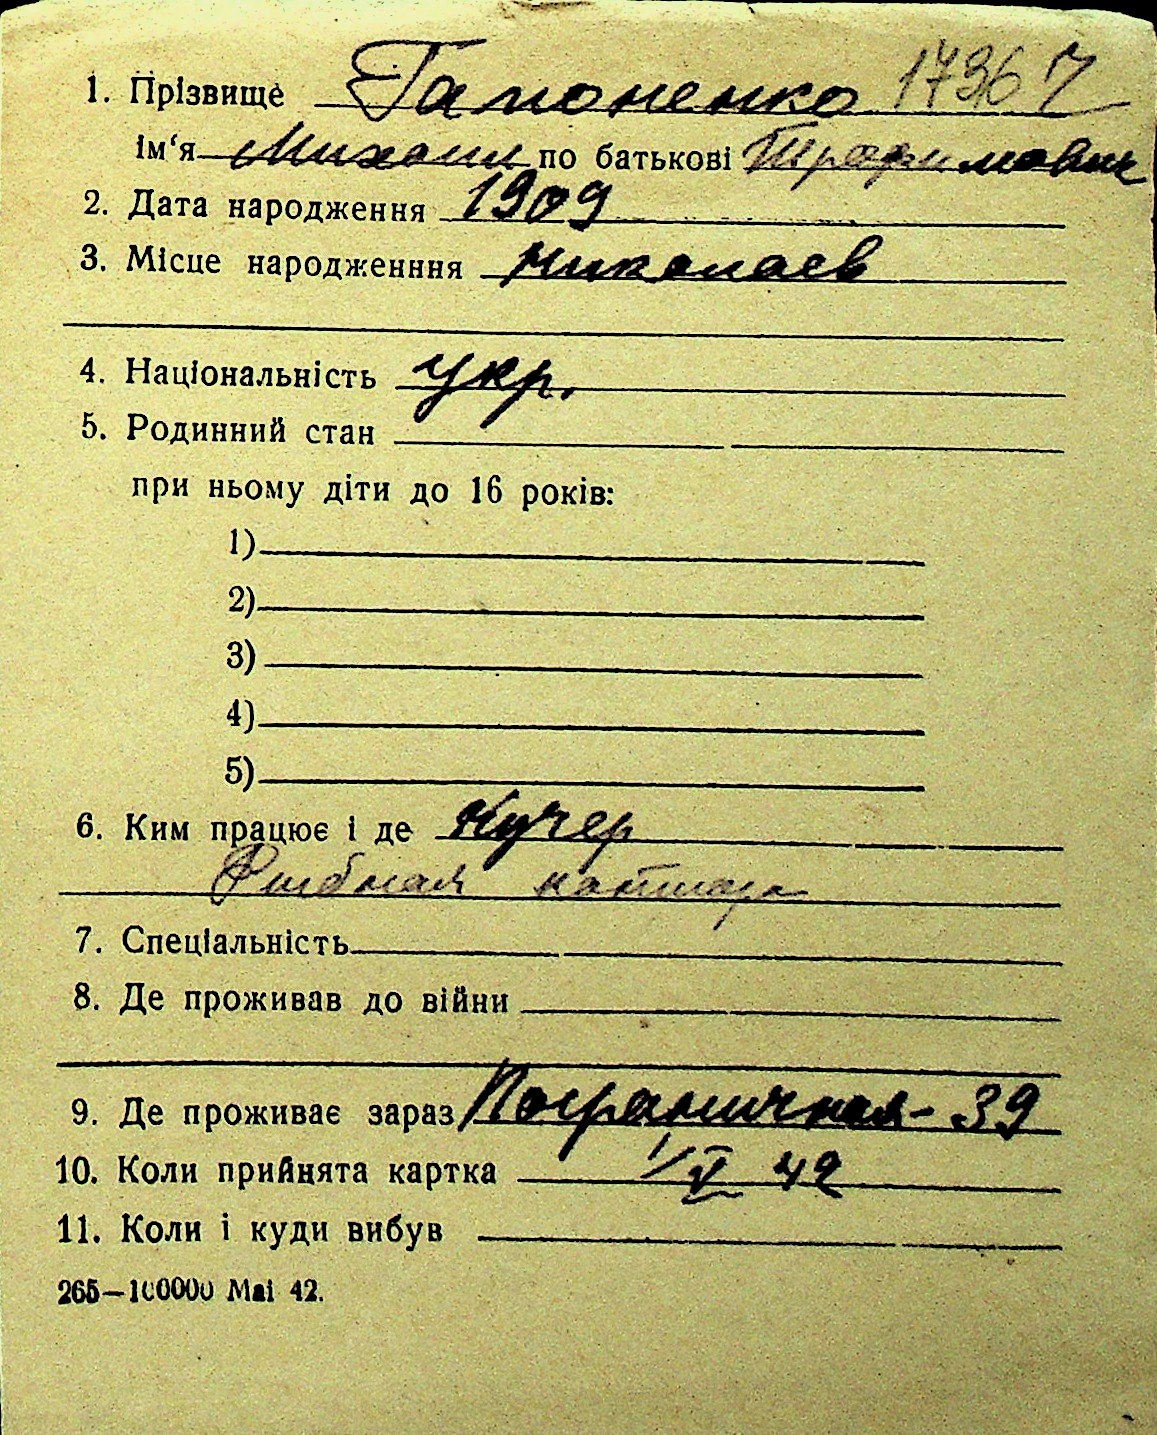 1. Прізвище Гапоненко 17367
Ім‘я Михаил по батькові Трофимович
2. Дата народження 1909
3. Місце народженння Николаев
4. Національність укр.
5. Родинний стан
при ньому діти до 16 років:
1)
2)
3)
4)
5)
6. Ким працює і де Кучер
Рыбная
7. Спеціальність
8. Де проживав до війни
9. Де проживає зараз Пограничная-39
10. Коли прийнята картка 1/V 42
11. Коли і куди вибув
265—100000 Mai 42.